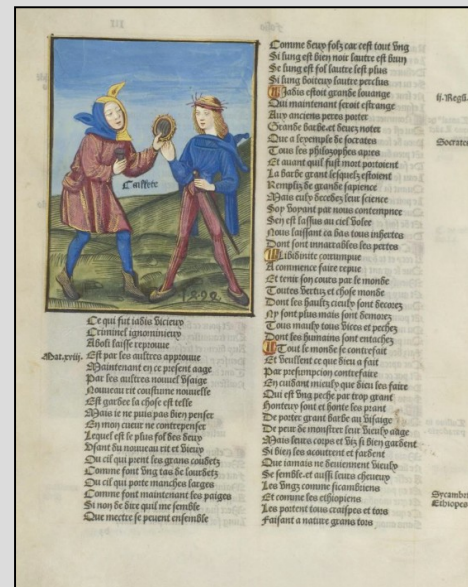 Caillette
1494
Ce qui fut iadis vicieux
Criminel ignominieux
Aboli laisse reprouue
Mat.xviij.
Est par les aultres approuue
Maintenant en ce present aage
Par les aultres nouuel vsaige
Nouueau rit coustume nouuelle
Est gardee la chose est telle
Mais ie ne puis pas bien penser
En mon cueur ne contrepenser
Lequel est le plus fol des deux
Vsant du nouueau rit et vieux
Ou cil qui prent les grans coudetz
Comme font vng tas de lourdetz
Ou cil qui porte manches larges
Comme font maintenant les paiges
Si non de dire quil me semble
Que mectre se peuent ensemble
Comme deux folz car cest tout vng
Si lung est bien noir lautre est brun
Se lung est fol lautre lest plus
Si lung boiteux lautre perclus
Iadis estoit grande louange
Qui maintenant seroit estrange
Aux anciens peres porter
Grande barbe. et deuez noter
Que a lexemple de socrates
Tous les philosophes apres
Et auant quil fust mort portoient
La barbe grant lesquelz estoient
Rempliz de grande sapience
Mais eulx decedez leur science
Soy voyant par nous contempnee
Sen est lassus au ciel volee
Nous laissant ca bas tous inhertes
Dont sont innarrables les pertes
Libidinite corrumpue
A commence faire repue
Et tenir son cours par le monde
Toutes vertuz et chose monde
Dont les haultz cieulx sont decorez
Ny sont plus mais sont demorez
Tous maulx tous vices et pechez
Dont les humains sont entachez
Tout le monde se contrefait
Et veullent ce que dieu a fait
Par presumpcion contrefaire
En cuidant mieulx que dieu les faire
Qui est vng peche par trop grant
Honteux sont et honte les prant
De porter grant barbe au visaige
De peur de monstrer leur vieulx aage
Mais leurs corps et viz si bien gardent
Si bien les acoutrent et fardent
Que iamais ne deuiennent vieulx
Se semble. et aussi leurs cheueux
Les vngz comme sicambriens
Et comme les ethiopiens
Les portent tous craispes et tors
Faisant a nature grans tors
ij. Reg
Socrate
Sycambri
Ethiopes